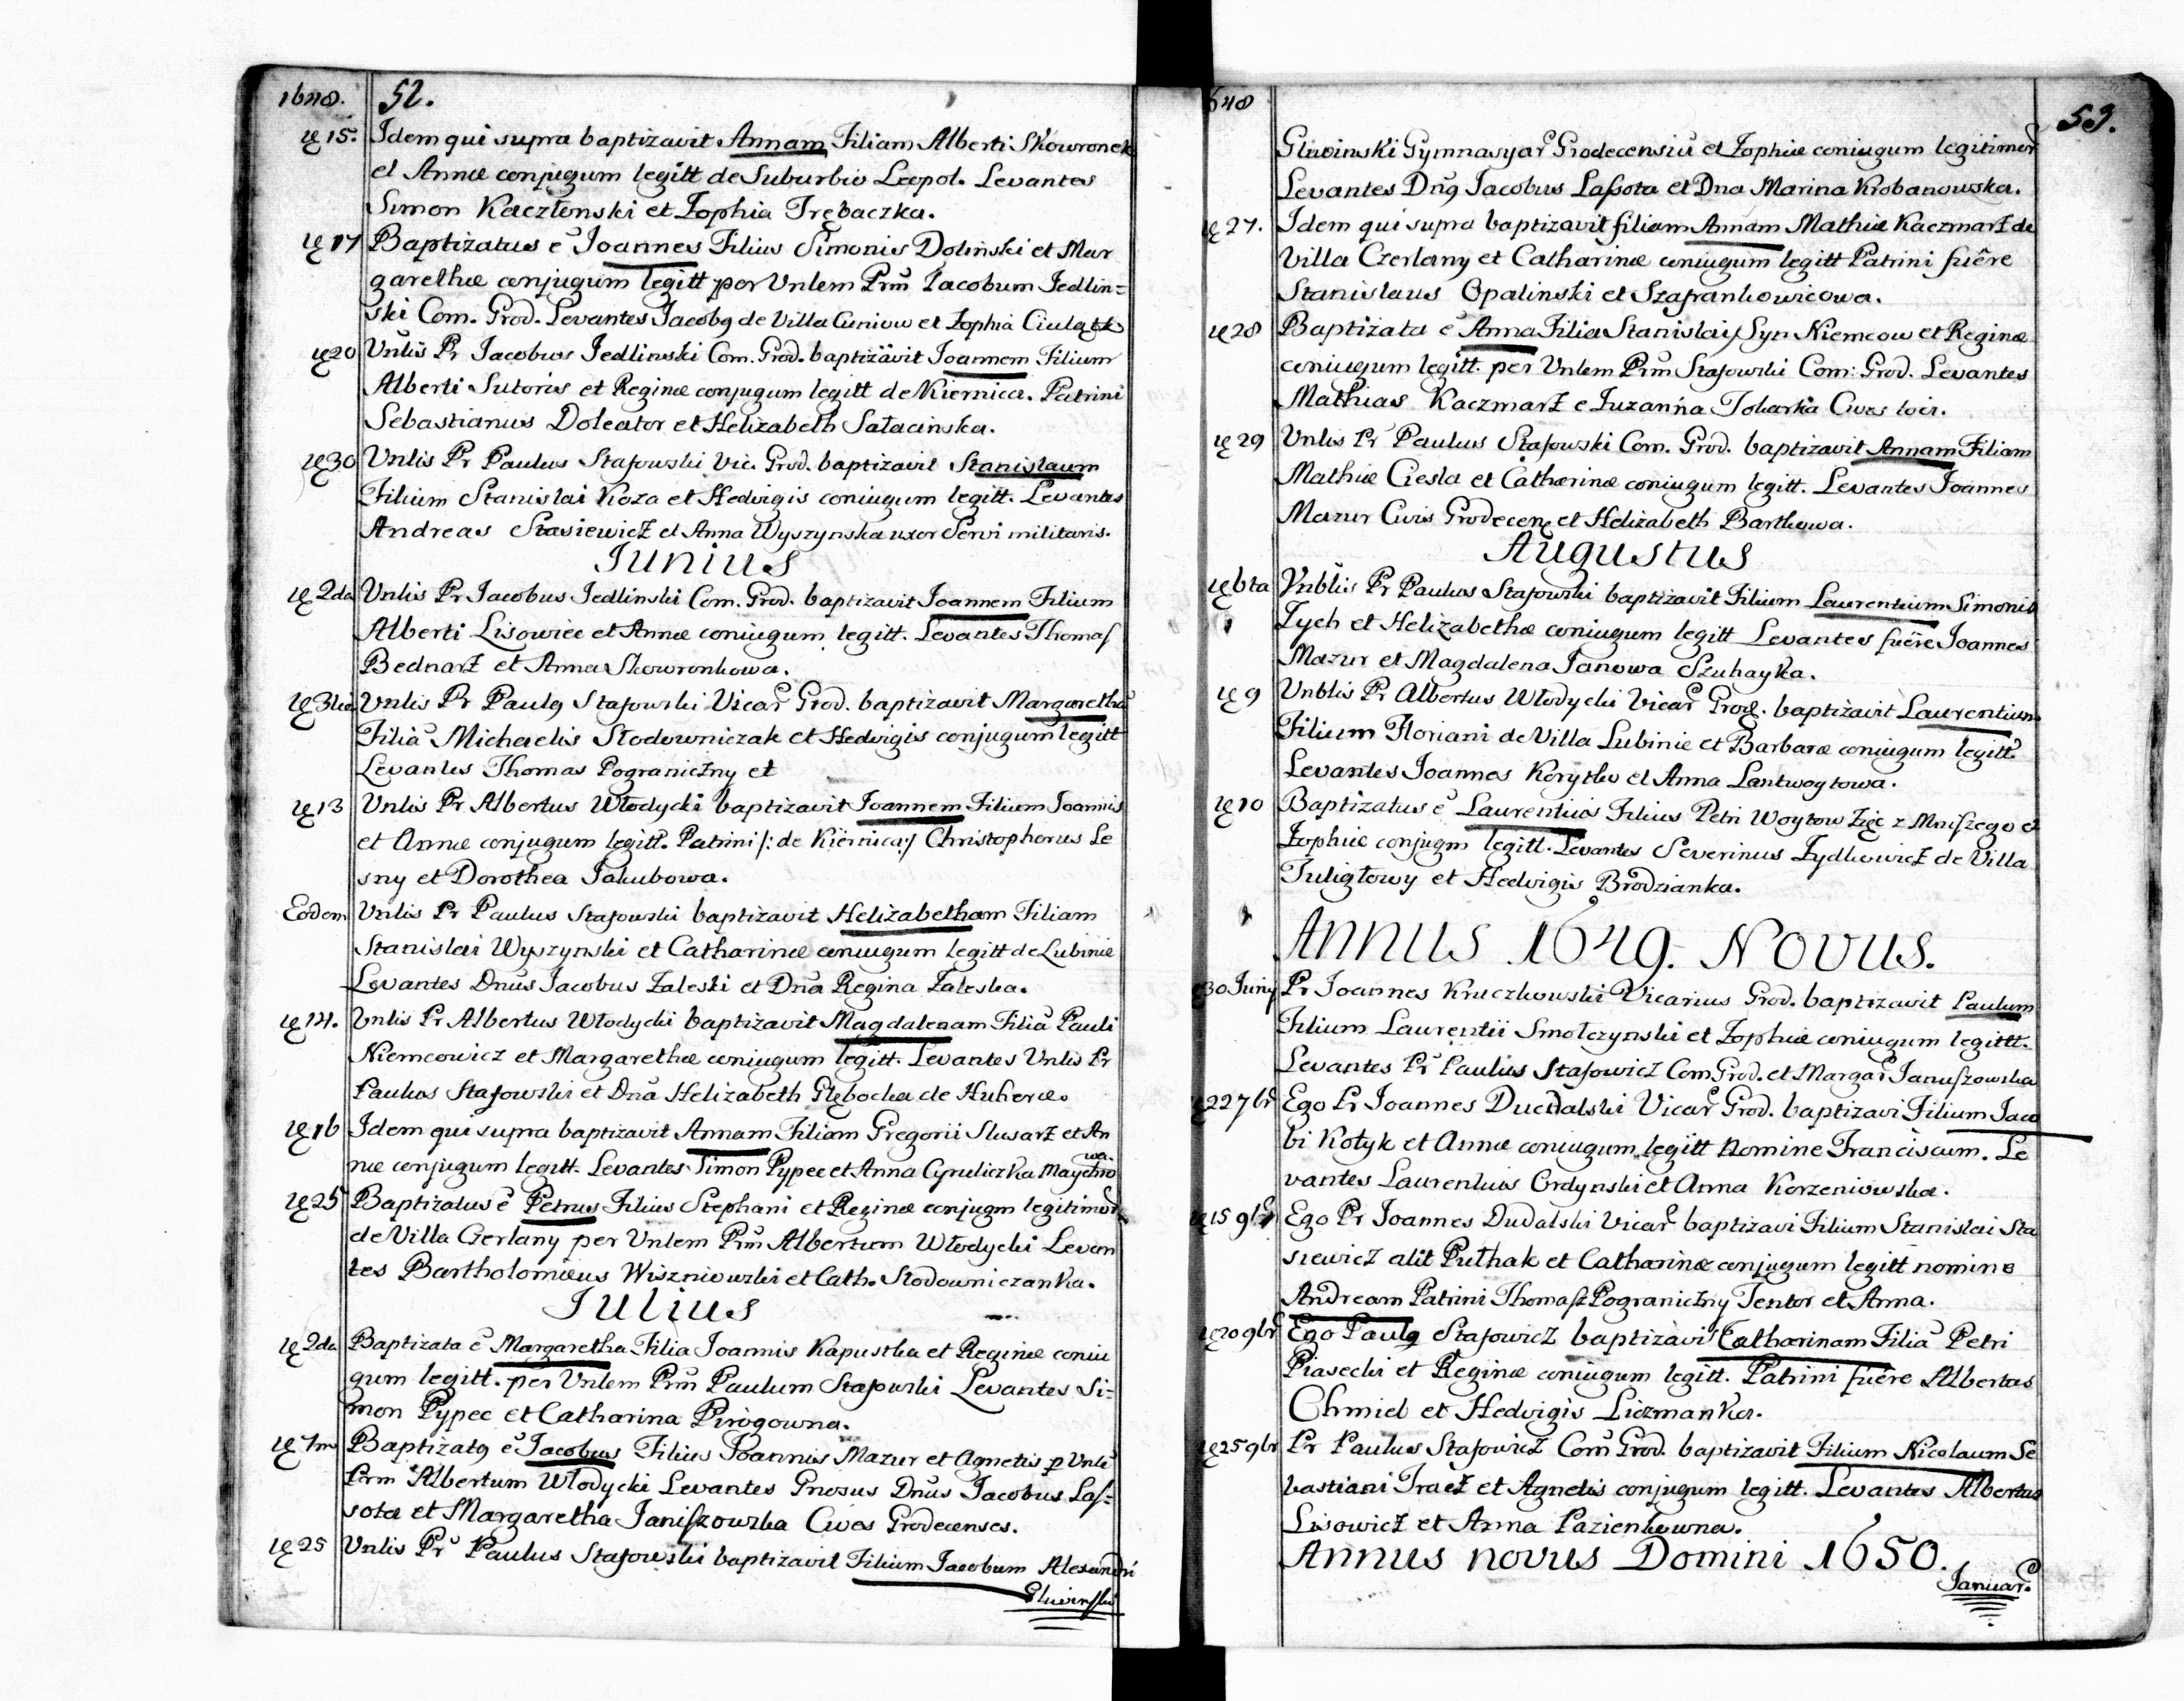 1648. 52.
ıę 15. Idem qui supra baptizavit Annam Filiam Alberti Skowronek
et Annæ conjugum legitt de Suburbio Leopol. Levantes
Simon Kaczłenski et Zophia Trębaczka.
ıę 17 Baptizatus ē Joannes Filius Simonis Dolinski et Mar
garethæ conjugum legitt per Vnlem Prm̃ Jacobum Jedlin=
ski Com. Grod. Levantes Jacobg de Villa Cuniow et Zophia
ıę 20 Vnlis Pr Jacobus Jedlinski Com. Grod. baptizavit Joannem Filium
Alberti Sutoris et Reginæ conjugum legitt de Kiernica. Patrini
Sebastianus Doleator et Helizabeth Sałacinska.
ıę 30 Vnlis Pr Paulus Stafowski Vic. Grod. baptizavit Stanislaum
Filium Stanislai Koza et Hedvigis coniugum legitt. Levantes
Andreas Stasiewicz et Anna Wyszynska uxor Servi militaris.
Junius
ıę 2da Vnlis Pr Jacobus Jedlinski Com. Grod. baptizavit Joannem Filium
Alberti Lisowiec et Annæ coniugum legitt. Levantes Thomas
Bednarz et Anna Skowronkowa.
ıę 3tia Vnlis Pr Paulg Stafowski Vicar Grod. baptizavit Margarethã
Filiã Michaelis Słodowniczak et Hedvigis conjugum legitt
Levantes Thomas Pograniczny et
ıę 13 Vnlis Pr Albertus Włodycki baptizavit Joannem Filium Joannis
et Annæ conjugum legitt. Patrini /: de Kiernica :/ Christophorus Le
sny et Dorothea Jakubowa.
Eodem Vnlis Pr Paulus Stafowski baptizavit Helizabetham Filiam
Stanislai Wyszynski et Catharinæ coniugum legitt de Lubinie
Levantes Dnus Jacobus Zaleski et Dna Regina Zaleska.
ıę 14. Vnlis Pr Albertus Włodycki baptizavit Magdalenam Filiã Pauli
Niemcowicz et Margarethæ coniugum legitt. Levantes Vnlis Pr
Paulus Stafowski et Dna Helizabeth Głębocka de Huherce.
ıę 16 Idem qui supra baptizavit Annam Filiam Gregorii Slusarz et An
næ conjugum legitt. Levantes Simon Pypec et Anna Cyruliczka Maychro
wa.
ıę 25 Baptizatus ē Petrus Filius Stephani et Reginæ conjugm legitimor
de Villa Czerlany per Vnlem Prm̃ Albertum Włodycki Levan
tes Bartholomæus Wiszniowski et Cath. Słodowniczanka.
Julius
ıę 2da Baptizata ē Margaretha Filia Joannis Kapustka et Reginæ coniu
gum legitt. per Vnlem Prm̃ Paulum Stafowski Levantes Si=
mon Pypec et Catharina Pirogowna.
ıę 7m Baptizatg ē Jacobus Filius Joannis Mazur et Agnetis p Vnlē
Prm Albertum Włodycki Levantes Gnosus Dnus Jacobus Las=
sota et Margaretha Janiszowska Cives Grodecenses.
ıę 25 Vnlis Pr Paulus Stafowski baptizavit Filium Jacobum Alexandri
Gluvinski
648 53.
Gluvinski Gymnasyar Grodecensiũ et Zophiæ coniugum legitimor
Levantes Dng Jacobus Lassota et Dna Marina Krobanowska.
ıę 27. Idem qui supra baptizavit filiam Annam Mathiæ Kaczmarz de
Villa Czerlany et Catharinæ coniugum legitt Patrini fuêre
Stanislaus Opalinski et Szafrankowicowa.
ıę 28 Baptizata ē Anna Filia Stanislai Syn Niemcow et Reginæ
coniugum legitt. per Vnlem Prm̃ Stafowski Com: Grod. Levantes
Mathias Kaczmarz e Zuzanna Tokarka Cives
ıę 29 Vnlis Pr Paulus Stafowski Com. Grod. baptizavit Annam Filiam
Mathiæ Ciesla et Catharinæ coniugum legitt. Levantes Joannes
Mazur Civis Grodecen et Helizabeth Bartkowa.
Augustus
ıę 6ta Vnblis Pr Paulus Stafowski baptizavit Filium Laurentium Simonis
Zych et Helizabethæ coniugum legitt Levantes fuêre Joannes
Mazur et Magdalena Janowa Szuhayka.
ıę 9 Vnblis Pr Albertus Włodycki Vicar Grod. baptizavit Laurentium
Filium Floriani de Villa Lubinie et Barbaræ coniugum legitt
Levantes Joannes Korytko et Anna Lantwoytowa.
ıę 10 Baptizatus ē Laurentius Filius Petri Woytow Zięc z Mniszego et
Zophiæ conjugm legitt. Levantes Severinus Zydkowicz de Villa
Tuligłowy et Hedvigis Brodzianka.
Annus 1649. Novus.
30 Junij Pr Joannes Kruczkowski Vicarius Grod. baptizavit Paulum
Filium Laurentii Smolczynski et Zophiæ coniugum legittt.
Levantes Pr Paulus Stafowicz Com Grod. et Margar Januszowska
ıę 22 7br Ego Pr Joannes Dudalski Vicar Grod. baptizavi Filium Jaco
bi Kotyk et Annæ coniugum legitt nomine Franciscum. Le
vantes Laurentius Ordynski et Anna Korzeniowska.
ıę 15 9br Ego Pr Joannes Dudalski Vicar baptizavi Filium Stanislai Sta
siewicz alit Puthak et Catharinæ conjugum legitt nomine
Andream Patrini Thomasz Pograniczny Tentor et Anna.
ıę 20 9br Ego Paulg Stafowicz baptizavi Catharinam Filiã Petri
Piasecki et Reginæ coniugum legitt. Patrini fuêre Albertus
Chmiel et Hedvigis Liczmanka.
ıę 25 9br Pr Paulus Stafowicz Com Grod. baptizavit Filium Nicolaum Se
bastiani Tracz et Agnetis conjugum legitt. Levantes Albertus
Lisowicz et Anna Pazienkowna.
Annus novus Domini 1650.
Januar.